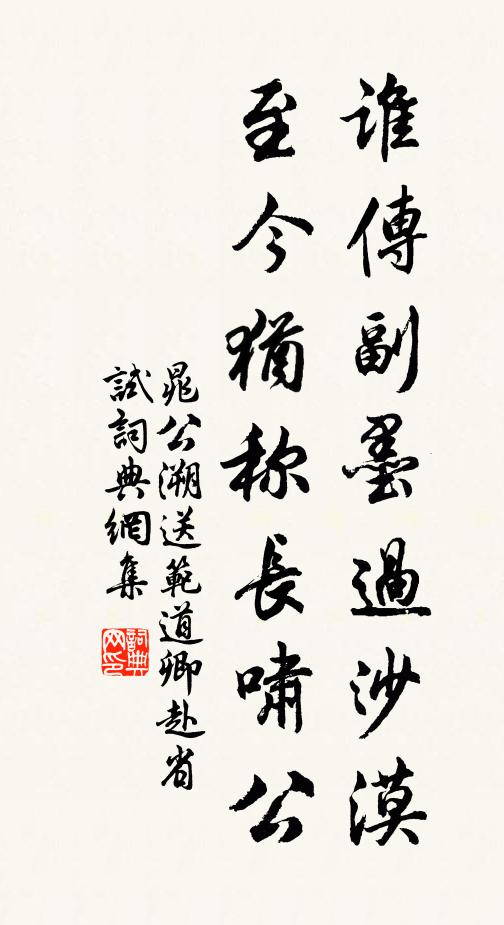 谁傳副墨過沙漠
至今猶称長啸公
晁公溯送範道卿赴省
試詞典網集
詞典
网印